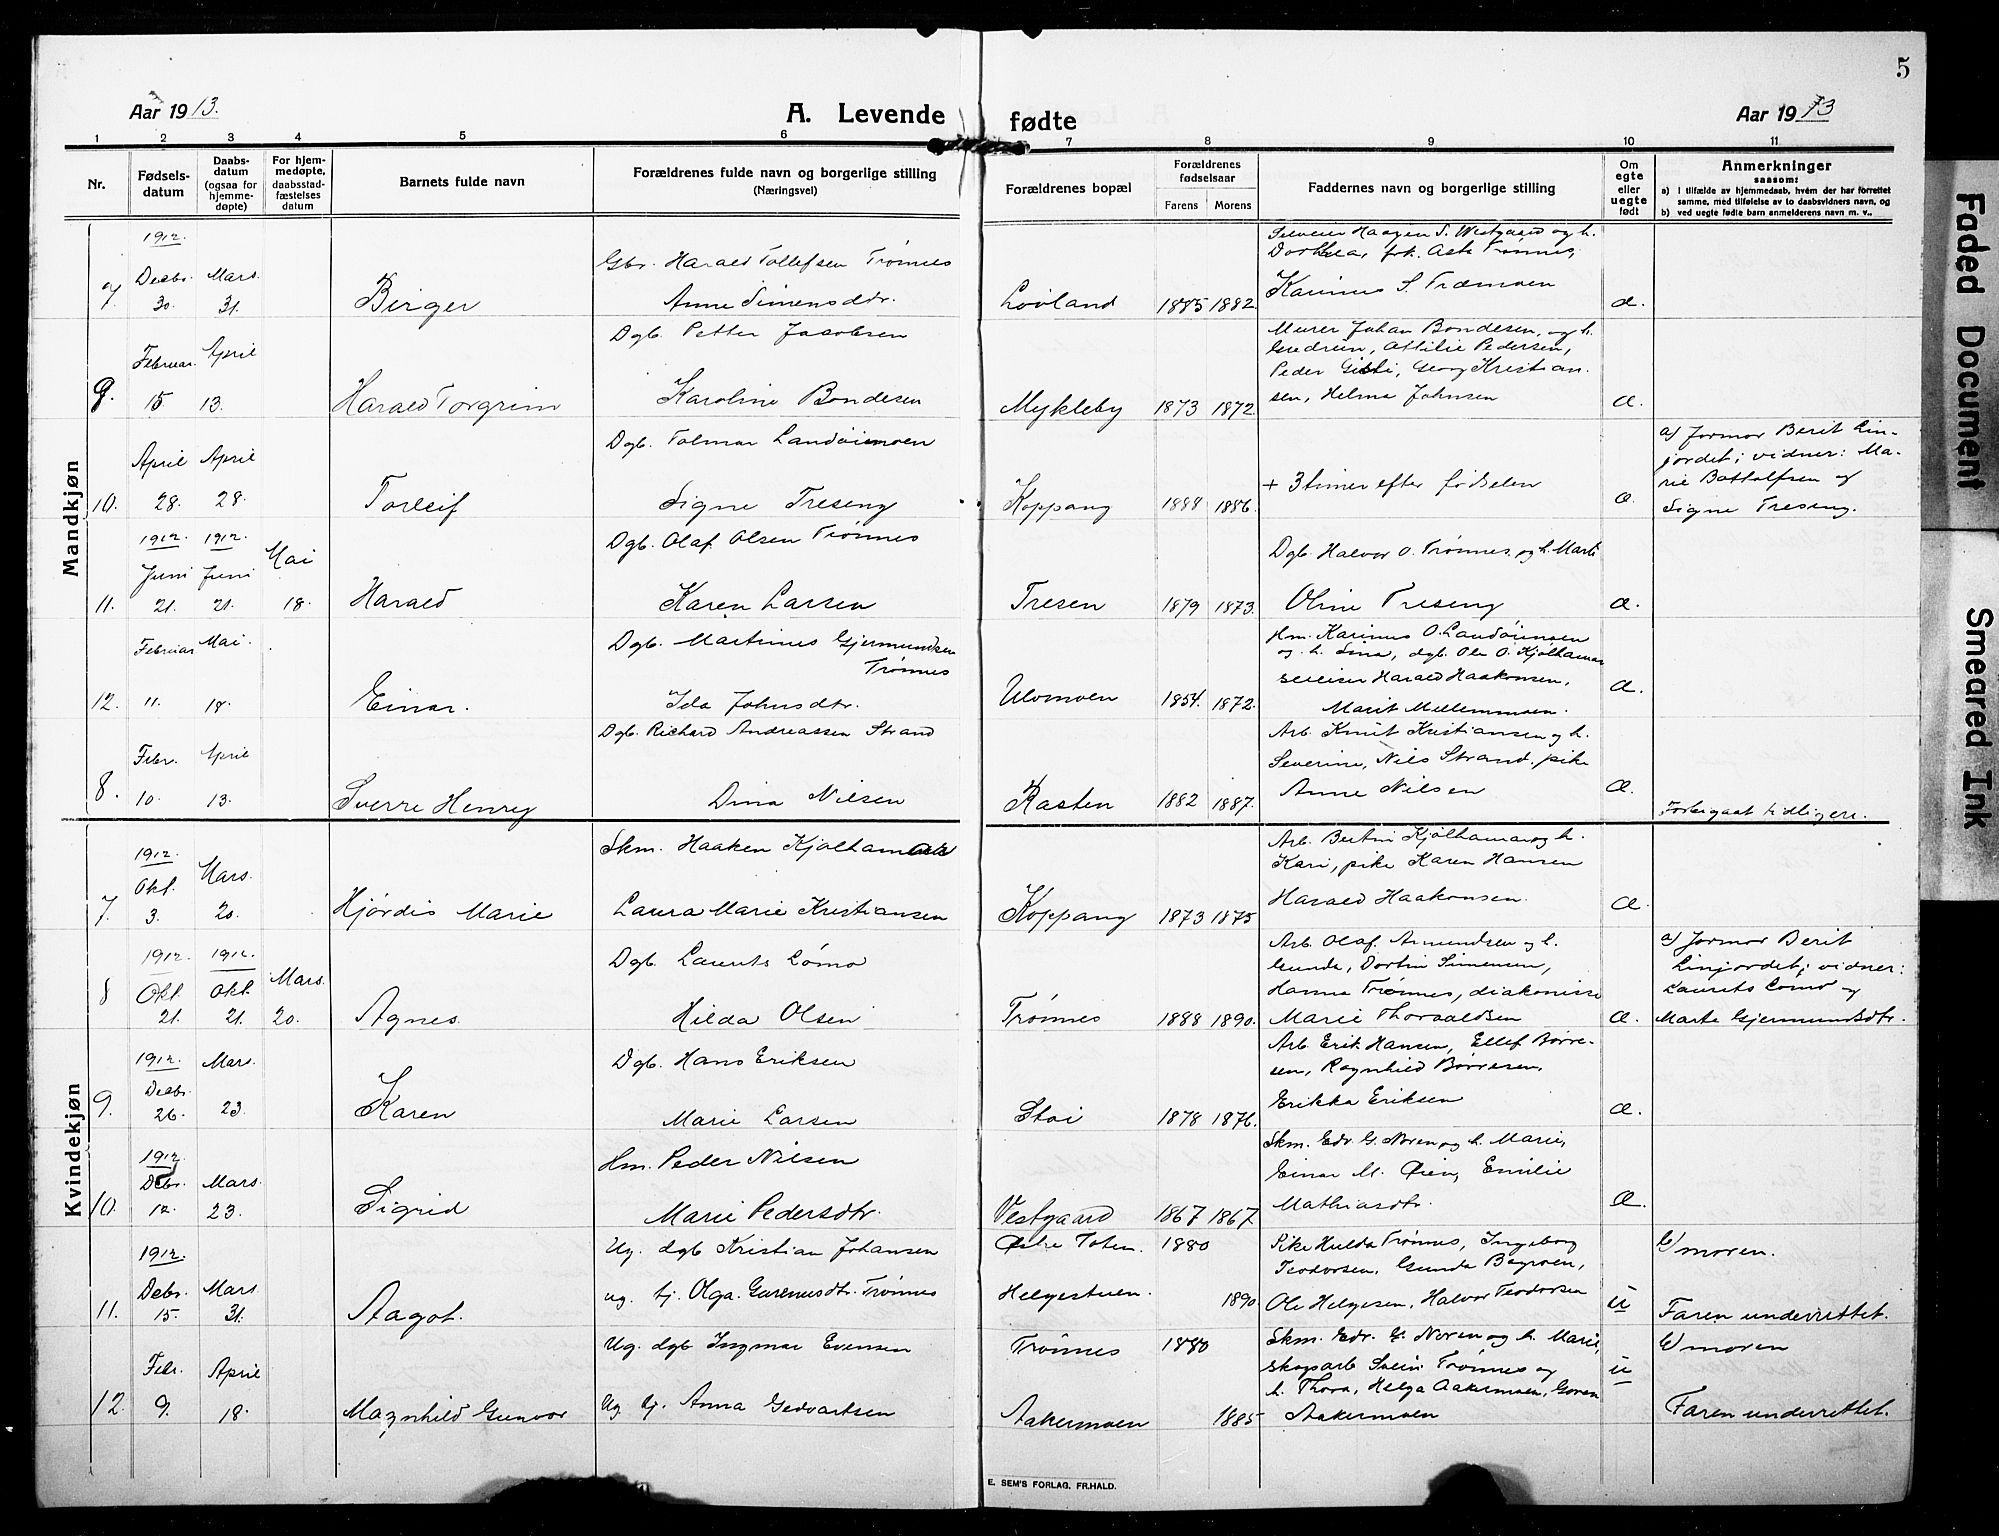 5
Aar 1913.
A. Levende
fødte
Aar 1913
1 2 3 4 5 6 7 8 9 10 11
Nr.
Fødsels-
datum
Daabs-
datum
(ogsaa for
hjemme-
døpte)
For hjem-
medøpte,
daabsstad-
fæstelses
datum
Barnets fulde navn
Forældrenes fulde navn og borgerlige stilling
(Næringsvei)
Forældrenes bopæl
Forældrenes
fødselsaar
Farens Morens
Faddernes navn og borgerlige stilling
Om
egte
eller
uegte
født
Anmerkninger
saasom:
a) i tilfælde av hjemmedaab, hvem der har forrettet
samme, med tilføielse av to daabsvidners navn, og
b) ved uegte fødte barn anmelderens navn m. v.,
Mandkjøn
7
1912.
Decbr.
30.
Mars.
31.
Birger
Gbr. Harald Tollefsen Trønnes
Anne Simensdtr.
Lovland
1885 1882.
Haagen S. Westgaard og h.
Dorthea, frk. Trønnes,
Karinus S. Træmoen
æ.
9.
Februar.
15
April
13.
Harald Torgrim
Dgb. Petter Jacobsen
Karoline Bondesen
Mykleby
1873 1872
Murer Johan Bondesen, og h.
Gudrun, Ottilie Pedersen,
Peder Georg Kristian-
sen, Helma Johnsen
æ.
10.
April
28.
April
28.
Torleif
Dgb. Tolmar Landøimoen
Signe Treseng
Koppang
1888 1886.
+ 3 timer efter fødselen
æ.
a) Jormor Berit Lin-
jordet; vidner: Ma-
rie Bottolfsen og
Signe Treseng.
11.
1912.
Juni
21.
1912.
Juni
21.
Mai
18.
Harald
Dgb. Olaf Olsen Trønnes
Karen Larsen
Tresen
1879 1873.
Dgb. Halvor O. Trønnes, og h. Marte
Oline Treseng
æ.
12.
Februar
11.
Mai.
18.
Einar.
Dgb. Martinus Gjermundsen
Trønnes
Ida Johnsdtr.
Ulvmoen
1854. 1872.
Hm. Karinus O. Landøimoen
og h. Sina, dgb. Ole O. Kjølhamar
Harald Haakonsen,
Marit Mellemmoen.
æ.
8.
Febr.
10.
April
13.
Sverre Henry
Dgb. Richard Andreassen Strand
Dina Nilsen
Kasten
1882 1887.
Arb. Knut Kristiansen og h.
Severine, Nils Strand, pike
Anne Nilsen
æ.
Forbigaat tidligere.
Kvindekjøn
7.
1912.
Okt.
3.
Mars.
20.
Hjørdis Marie
Skm. Haaken Kjølhamar
Laura Marie Kristiansen
Koppang
1873 1875
Arb. Bertin Kjølhamar og h.
Kari, pike Karen Hansen
Harald Haakonsen.
æ.
8
1912.
Okt.
21.
1912.
Okt.
21.
Mars.
20.
Agnes.
Dgb. Laurits Lømo
Hilda Olsen
Trønnes
1888 1890.
Arb. Olaf Amundsen og h.
Gunda, Dortin Simensen,
Hanna Trønnes, diakonisse
Marie Thorvaldsen
æ.
a) Jormor Berit
Linjordet; vidner:
Laurits Lømo og
Marte Gjermundsdtr.
9.
1912.
Decbr.
26.
Mars.
23.
Karen
Dgb. Hans Eriksen
Marie Larsen
Stai
1878 1876.
Arb. Erik Hansen, Ellef Børre-
sen, Ragnhild Børresen,
Erikka Eriksen
æ.
10.
1912.
Debr.
12.
Mars.
23.
Sigrid
Hm. Peder Nilsen
Marie Pedersdtr.
Vestgaard
1867 1867.
Skm. Edv. G. Noren og h. Marie,
Einar M. Øien, Emilie
Mathiasdtr.
æ.
11.
1912.
Debr.
15.
Mars
31.
Aagot.
Ug. dgb Kristian Johansen
ug. tj. Olga Trønnes
Østre Toten.
Helgestuen.
1880
1890.
Pike Hulda Trønnes, Ingeborg
Teodorsen, Gunda
Ole Helgesen, Halvor Teodorsen
u
b) moren.
Faren underrettet.
12.
Febr.
9.
April
18.
Magnhild Gunvor
Ug. dgb Ingmar Evensen
Ug. tj. Anna Gedvartsen
Trønnes
Aakermoen
1880
1885
Skm. Edv. G. Noren og h. Marie,
skogsarb Svein Trønnes og
h. Thora, Helga Aakermoen, Goren
Aakermoen
u
b) moren
Faren underrettet.
E. SEM'S FORLAG, FR.HALD.
Faded Document
Smeared Ink